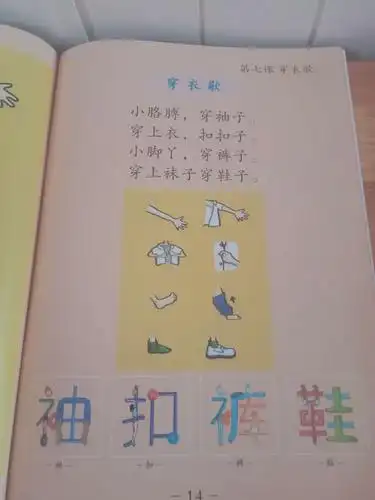 第七课 穿衣歌
穿衣歌
小胳膊，穿袖子。
穿上衣，扣扣子。
小脚丫，穿裤子。
穿上袜子穿鞋子。
袖 扣 裤 鞋
—袖— —扣— —裤— —鞋—
— 14 —